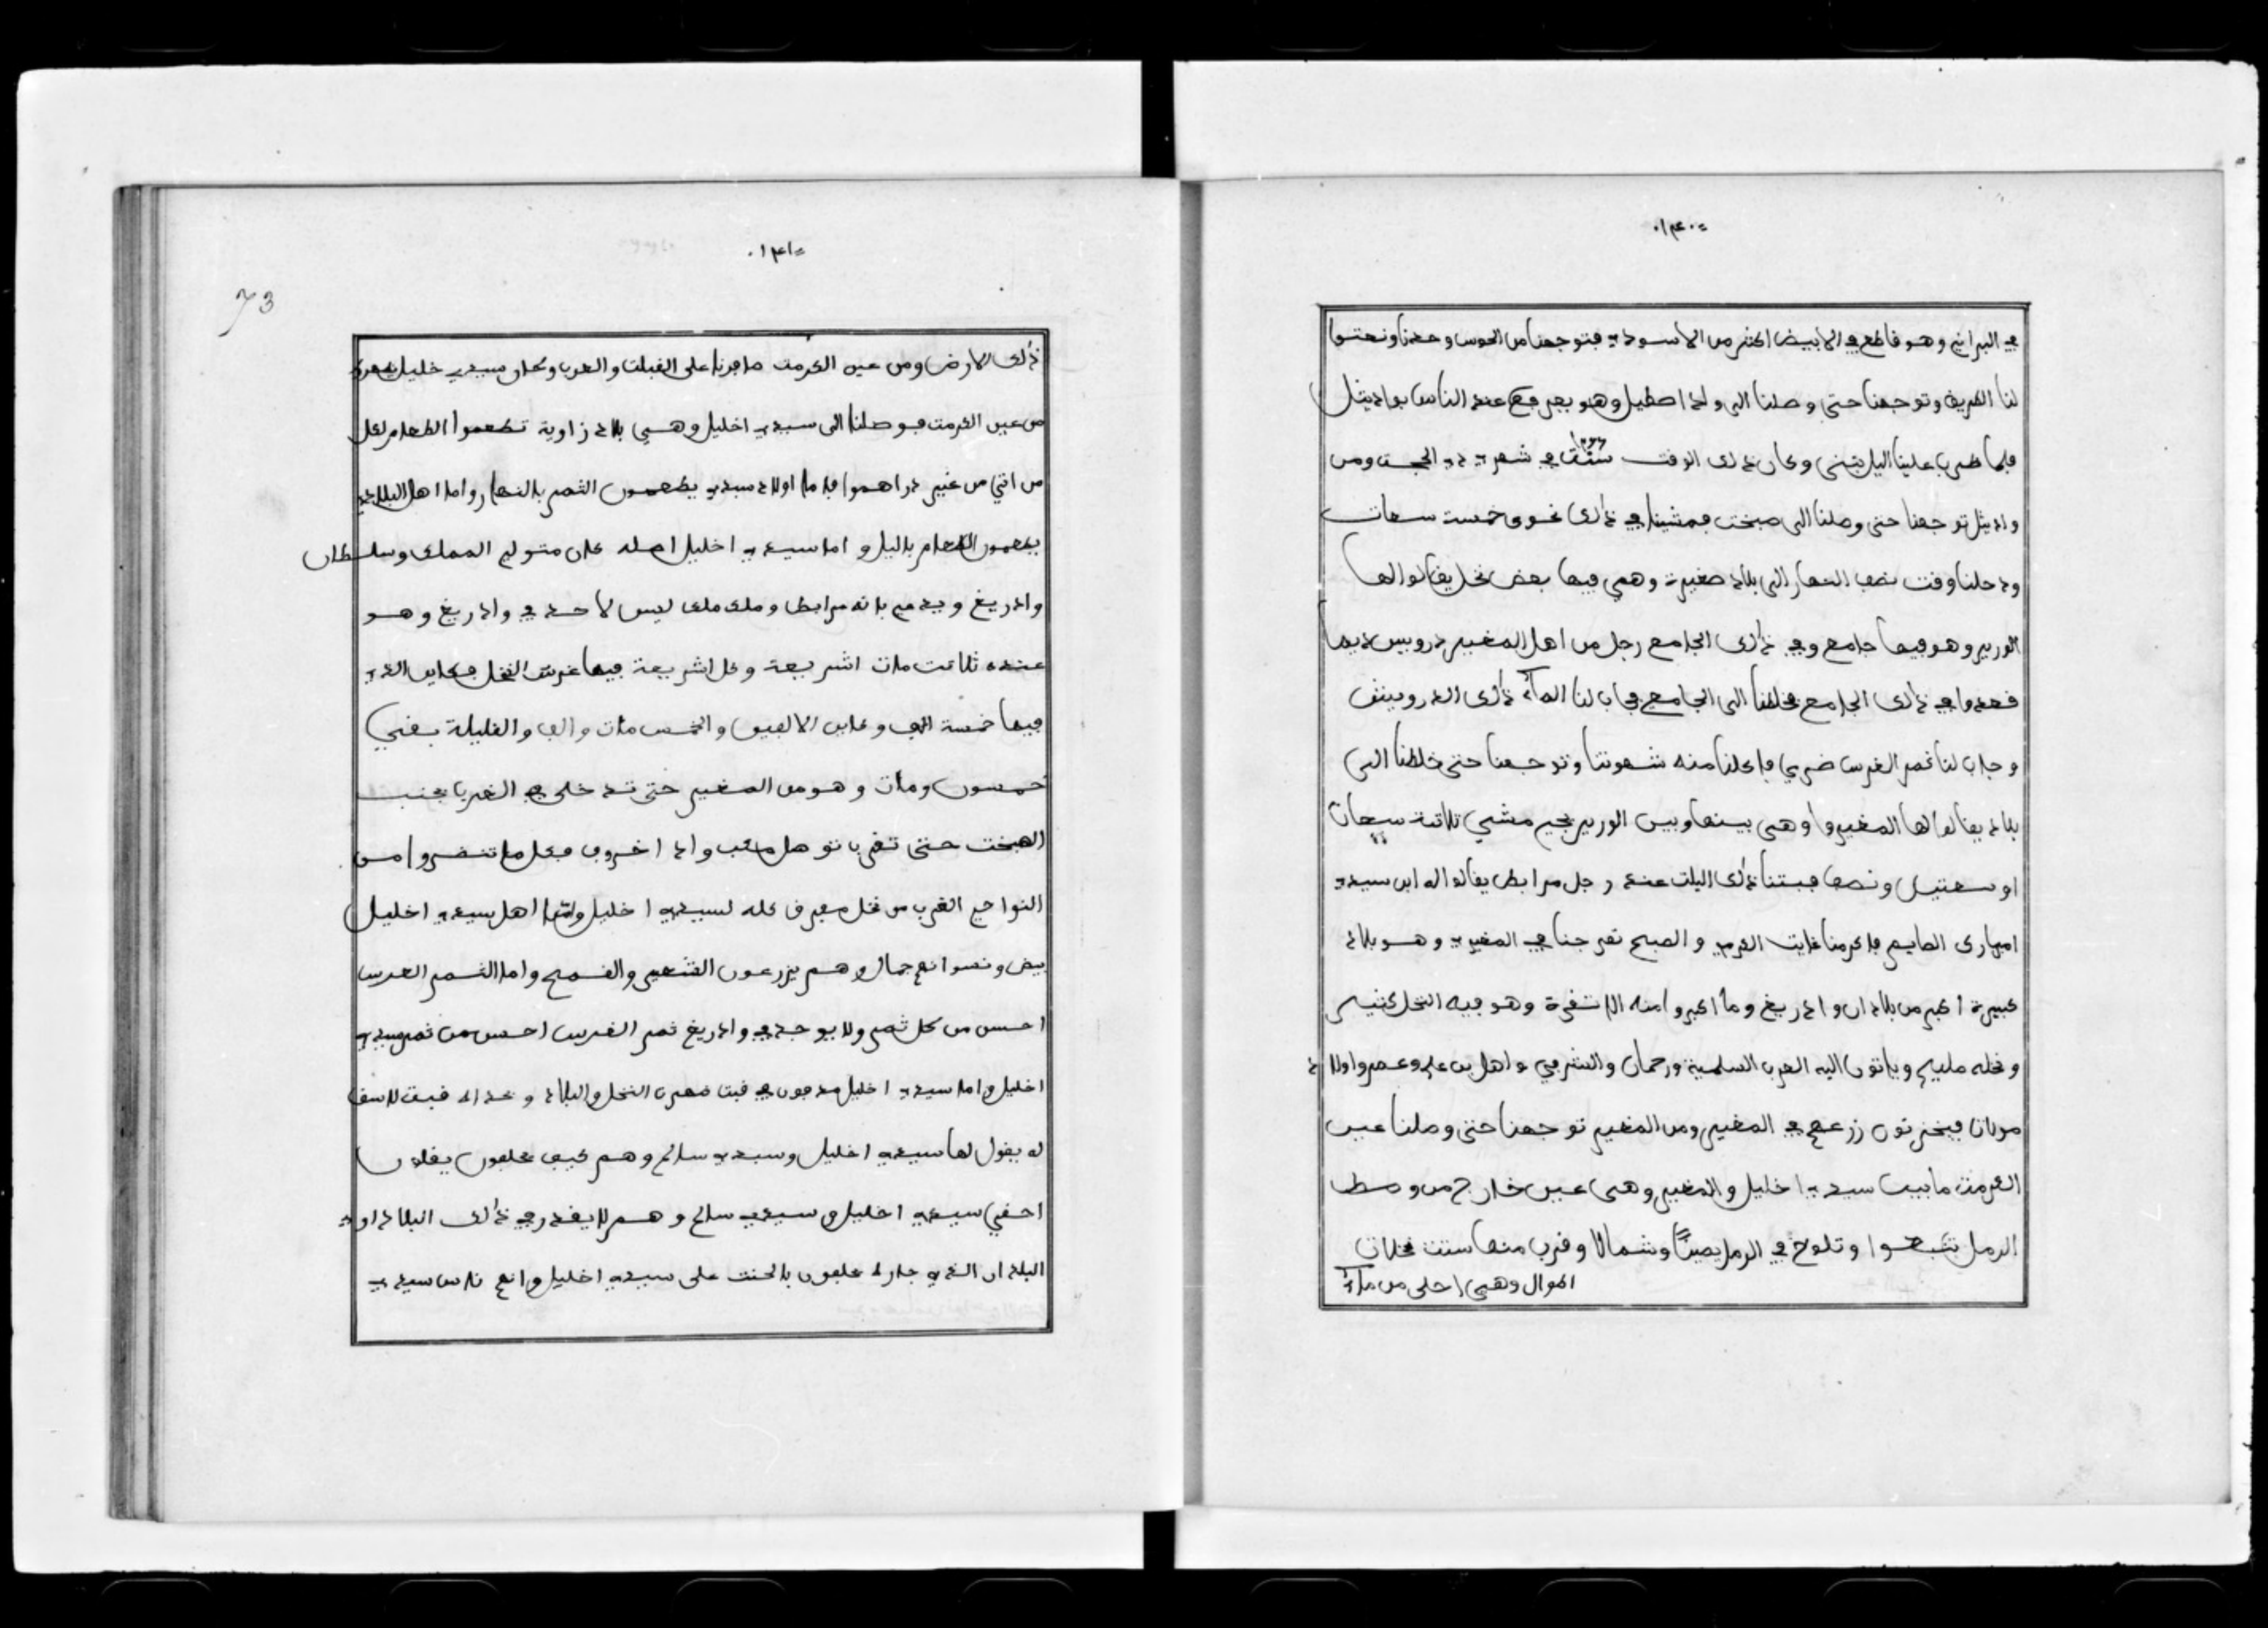 ١٤٠
في البراني وهو قاطع في الابيض اكثر من الاسود فتوجهنا من الحوس وحدنا ونعتوا
لنا الطريق وتوجهنا حتى وصلنا الى واد اصطيل وهو يعرفع عند الناس بواد يثل
فلما ظرب علينا اليل بتنى وكان ذلك الوقت ستة في شهر ذي الحجت ومن
واد يثل توجهنا حتى وصلنا الى صبخت فمشينا في ذلك نحوى خمست سعات
ودخلنا وقت نصف النهار الى بلاد صغيرة وهي فيها بعض نخل يقالو الها
الورير وهو فيها جامع وفي ذلك الجامع رجل من اهل المغير درويس ديما
قعدوا في ذلك الجامع فخلطنا الى الجامع فجاب لنا المآء ذلك الدرويش
وجاب لنا ثمر الغرس ضري فاكلنا منه شهوتنا وتوجهنا حتى خلطنا الى
بلاد يقالوا الها المغيروا وهى بينها وبين الورير يجي مشي ثلاثت سعات
او سعتيل ونصف فبتنا ذلك اليلت عند رجل مرابط يقالوا اله ابن سيدي
امبارك الصايم فاكرمنا غايت الكرم والصبح تفرجنا في المغير وهو بلاد
كبيرة اكبر من بلادان واد ريغ وما اكبروا منه الا تقرة وهو فيه النخل كثير
ونخله مليح وياتون اليه العرب السلمية ورحمان والشرفي واهل بن علي وعمر واولاد
مولات فيخزنون زرعهم في المغير ومن المغير توجهنا حتى وصلنا عين
الكرمت مابين سيدي اخليل والمغير وهى عين خارج من وسط
الرمل وتلوح في الرمل يمينًا وشمالا وقرب منها ستت نخلات
اطوال وهي احلى من مآء
١٤١
73
ذلك الارض ومن عين الكرمت صافرنا على القبلت والعرب وكان سيدي خليل
من عين الكرمت فوصلنا الى سيدي اخليل وهي بلاد زاوية تطعموا الطعام لكل
من اتي من غير دراهموا فاما اولاد سيدي يطعمون الثمر بالنهار واما اهل البلاد
يطعمون الطعام باليل واما سيدي اخليل اصله كان متولي الملك وسلطان
واد ريغ ويدعي بانه مرابط وملك ملك ليس لاحد في واد ريغ وهو
عنده ثلاثت مات اشريعة وكل اشريعة فيها غرس النخل فكاين الذي
فيها خمسة الف وكاين الالفين والخمس مات والف والقليلة بقي
خمسون ومات وهو من المغير حتى تدخلى في الغرب بجنب
الصبخت حتى تقرب نوصل واد اخروف فكل ما تنضروا من
النواحي الغرب من نخل معرف كله لسيدي اخليل وامّا اهل سيدي اخليل
بيض ونسوانهم جمال وهم يزرعون الشعير والقمح واما الثمر الغرس
احسن من كل ثمر ولا يوجد في واد ريغ ثمر الغرس احسن من ثمر سيدي
اخليل واما سيدي اخليل مدفون في قبت قرب النخل والبلاد وحداه قبت للاسفا
له يقول لها سيدي اخليل وسيدي سالم وهم كيف يحلفون يقلون
احقي سيدي اخليل وسيدي سالم وهم لا يقدر في ذلك البلاد او
البلدان الذي جاره يحلفون بالحنت على سيدي اخليل وانهم ناس سيدي